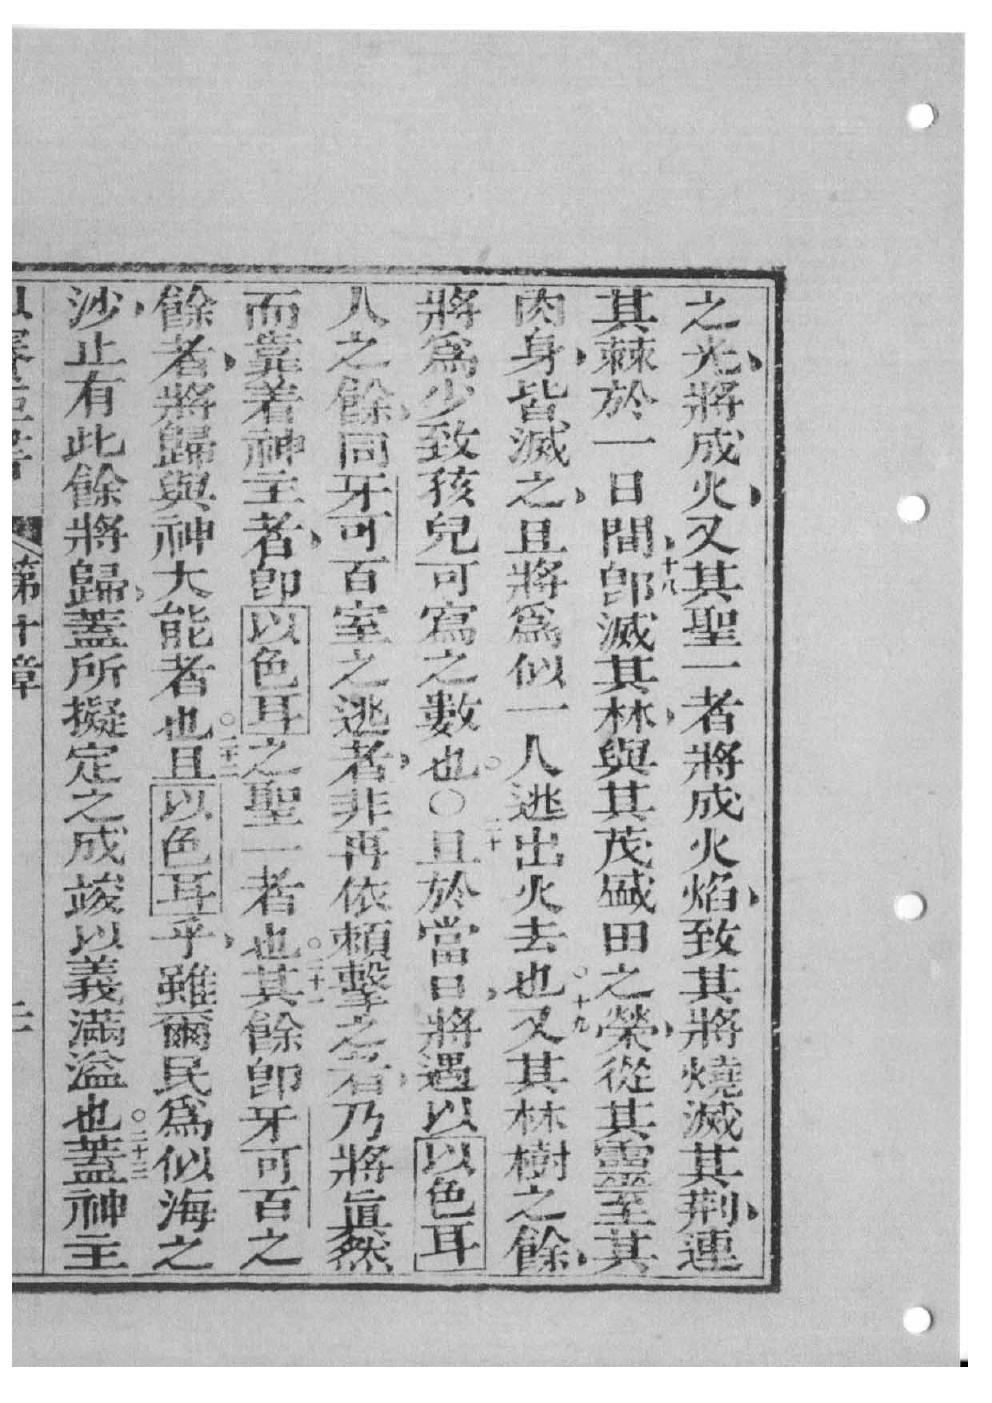 之光將成火又其聖一者將成火焰致其將燒滅其荆連
其棘於一日間十八卽滅其林與其茂盛田之榮從其靈至其
肉身皆滅之且將爲似一人逃出火去也○十九又其林樹之餘
將爲少致孩兒可寫之數也○二十○且於當日將遇以以色耳
人之餘同牙可百室之逃者非再依賴擊之者乃將眞然
而靠着神主者卽以色耳之聖一者也○二十一其餘卽牙可百之
餘者將歸與神大能者也○二十二且以色耳乎雖爾民爲似海之
沙止有此餘將歸蓋所擬定之成竣以義滿溢也○二十三蓋神主
第十章